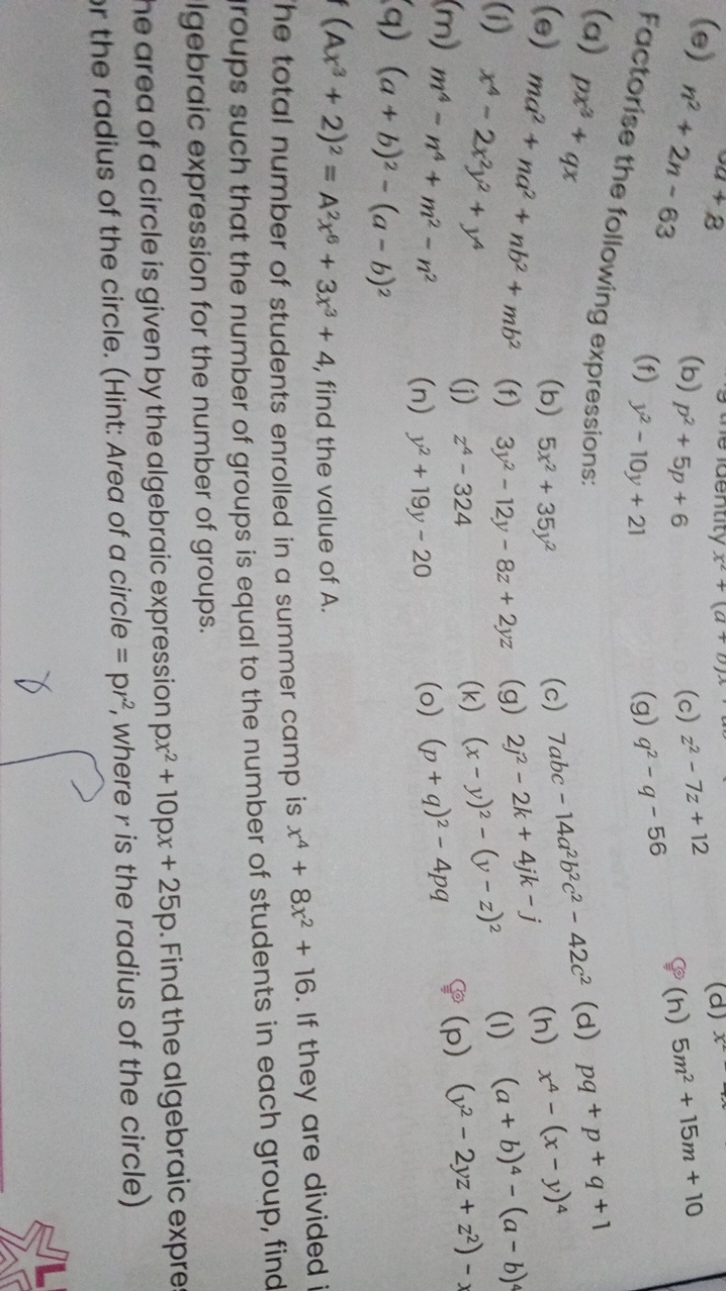 + 8
(e) n² + 2n − 63 (b) p² + 5p + 6 (c) z² − 7z + 12 (d)
(f) y² − 10y + 21 (g) q² − q − 56 (h) 5m² + 15m + 10
Factorise the following expressions:
(a) px³ + qx (b) 5x² + 35y² (c) 7abc − 14a²b²c² − 42c² (d) pq + p + q + 1
(e) ma² + na² + nb² + mb² (f) 3y² − 12y − 8z + 2yz (g) 2j² − 2k + 4jk − j (h) x⁴ − (x − y)⁴
(i) x⁴ − 2x²y² + y⁴ (j) z⁴ − 324 (k) (x − y)² − (y − z)² (l) (a + b)⁴ − (a − b)⁴
(m) m⁴ − n⁴ + m² − n² (n) y² + 19y − 20 (o) (p + q)² − 4pq (p) (y² − 2yz + z²) −
(q) (a + b)² − (a − b)²
(Ax³ + 2)² = A²x⁶ + 3x³ + 4, find the value of A.
total number of students enrolled in a summer camp is x⁴ + 8x² + 16. If they are divided
such that the number of groups is equal to the number of students in each group, find
expression for the number of groups.
area of a circle is given by the algebraic expression px² + 10px + 25p. Find the algebraic
the radius of the circle. (Hint: Area of a circle = pr², where r is the radius of the circle)